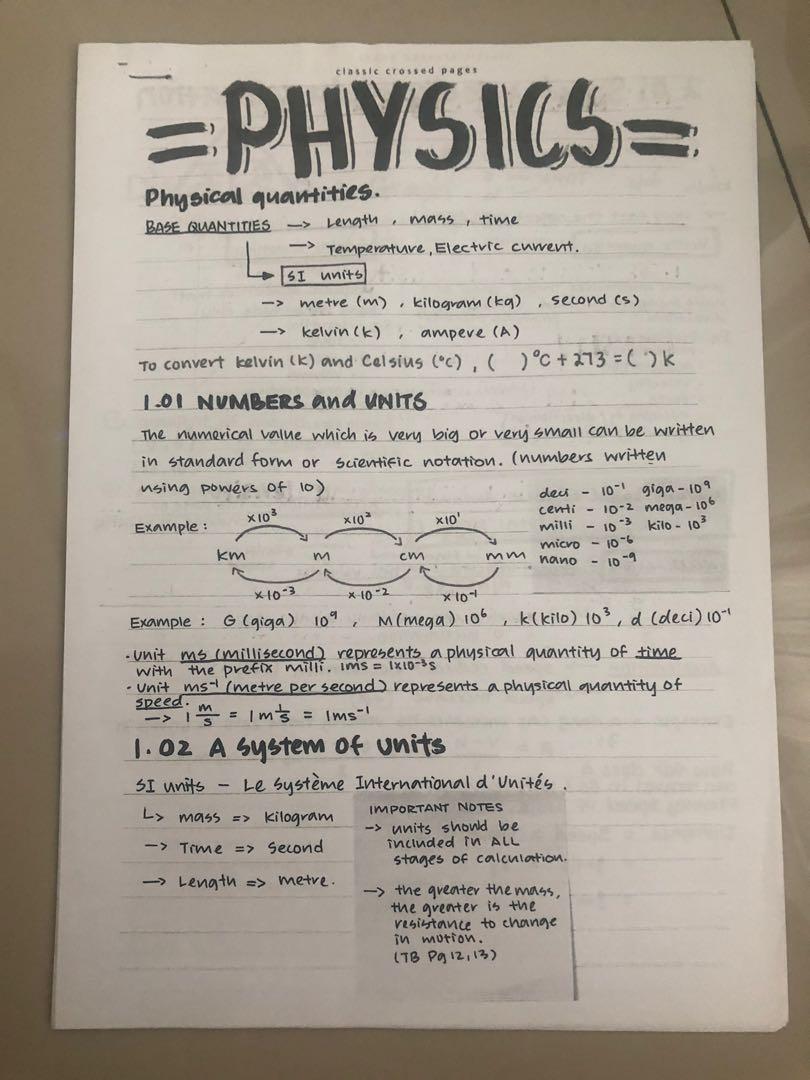 classic crossed pages
= PHYSICS =
Physical quantities.
BASE QUANTITIES -> Length , mass , time
-> Temperature, Electric current.
SI units
-> metre (m) , kilogram (kg) , second (s)
-> kelvin (k) , ampere (A)
To convert kelvin (k) and Celsius (°c) , ( )°C + 273 = ( ) k
1.01 NUMBERS and UNITS
The numerical value which is very big or very small can be written
in standard form or scientific notation. (numbers written
using powers of 10)
deci - 10⁻¹ giga - 10⁹
centi - 10⁻² mega - 10⁶
milli - 10⁻³ kilo - 10³
micro - 10⁻⁶
nano - 10⁻⁹
Example :
x10³ x10² x10¹
km m cm mm
x10⁻³ x10⁻² x10⁻¹
Example : G (giga) 10⁹ , M(mega) 10⁶ , k(kilo) 10³ , d (deci) 10⁻¹
· Unit ms (millisecond) represents a physical quantity of time
with the prefix milli. 1ms = 1x10⁻³s
· Unit ms⁻¹ (metre per second) represents a physical quantity of
speed.
-> 1 m/s = 1m 1/s = 1ms⁻¹
1.02 A system of units
SI units - Le Système International d'Unités .
↳ mass => kilogram
-> Time => Second
-> Length => metre.
IMPORTANT NOTES
-> units should be
included in ALL
stages of calculation.
-> the greater the mass,
the greater is the
resistance to change
in motion.
(TB Pg 12,13)